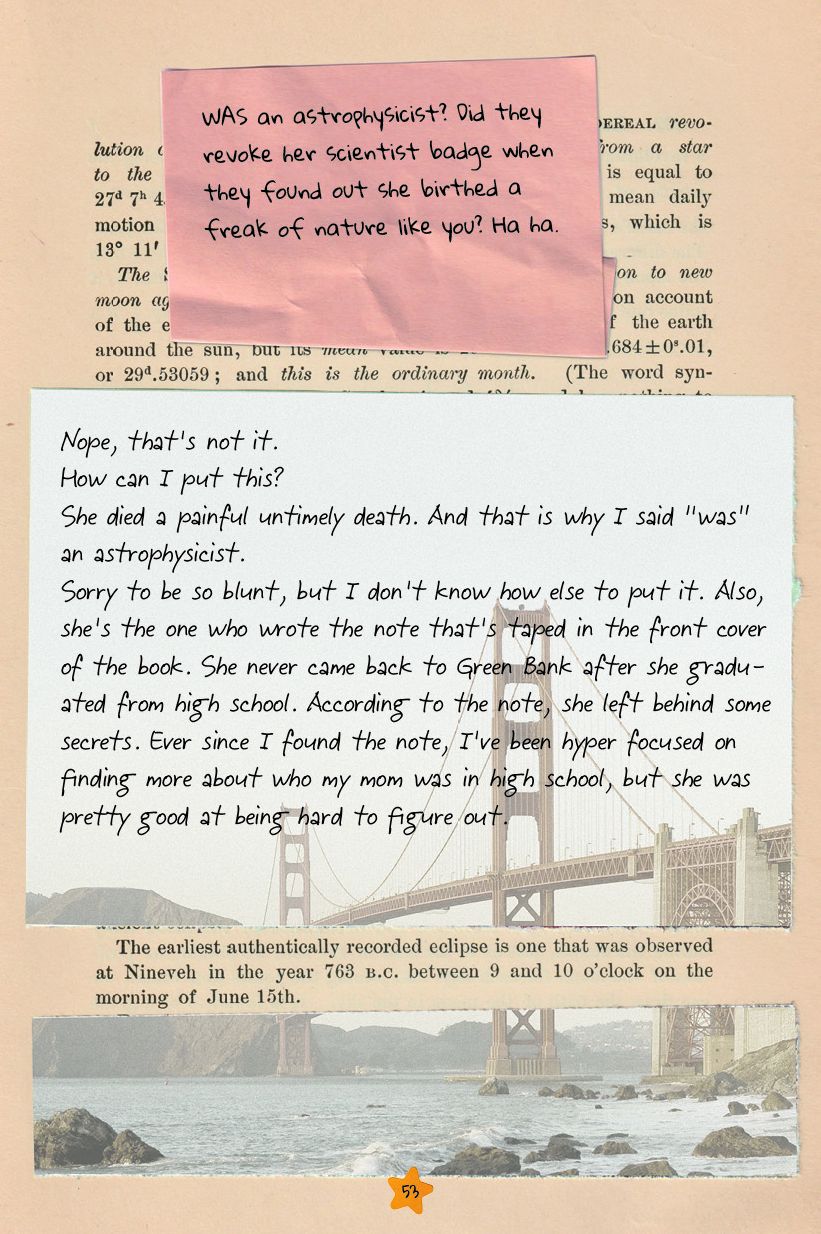 WAS an astrophysicist? Did they
revoke her scientist badge when
they found out she birthed a
freak of nature like you? Ha ha.
DEREAL revo-
lution
from a star
to the
is equal to
27ᵈ 7ʰ 4
mean daily
motion
which is
13° 11′
The
on to new
moon
on account
of the
the earth
around the sun, but its mean value is
.684±0ˢ.01,
or 29ᵈ.53059; and this is the ordinary month. (The word syn-
Nope, that's not it.
How can I put this?
She died a painful untimely death. And that is why I said "was"
an astrophysicist.
Sorry to be so blunt, but I don't know how else to put it. Also,
she's the one who wrote the note that's taped in the front cover
of the book. She never came back to Green Bank after she gradu-
ated from high school. According to the note, she left behind some
secrets. Ever since I found the note, I've been hyper focused on
finding more about who my mom was in high school, but she was
pretty good at being hard to figure out.
The earliest authentically recorded eclipse is one that was observed
at Nineveh in the year 763 B.C. between 9 and 10 o'clock on the
morning of June 15th.
53